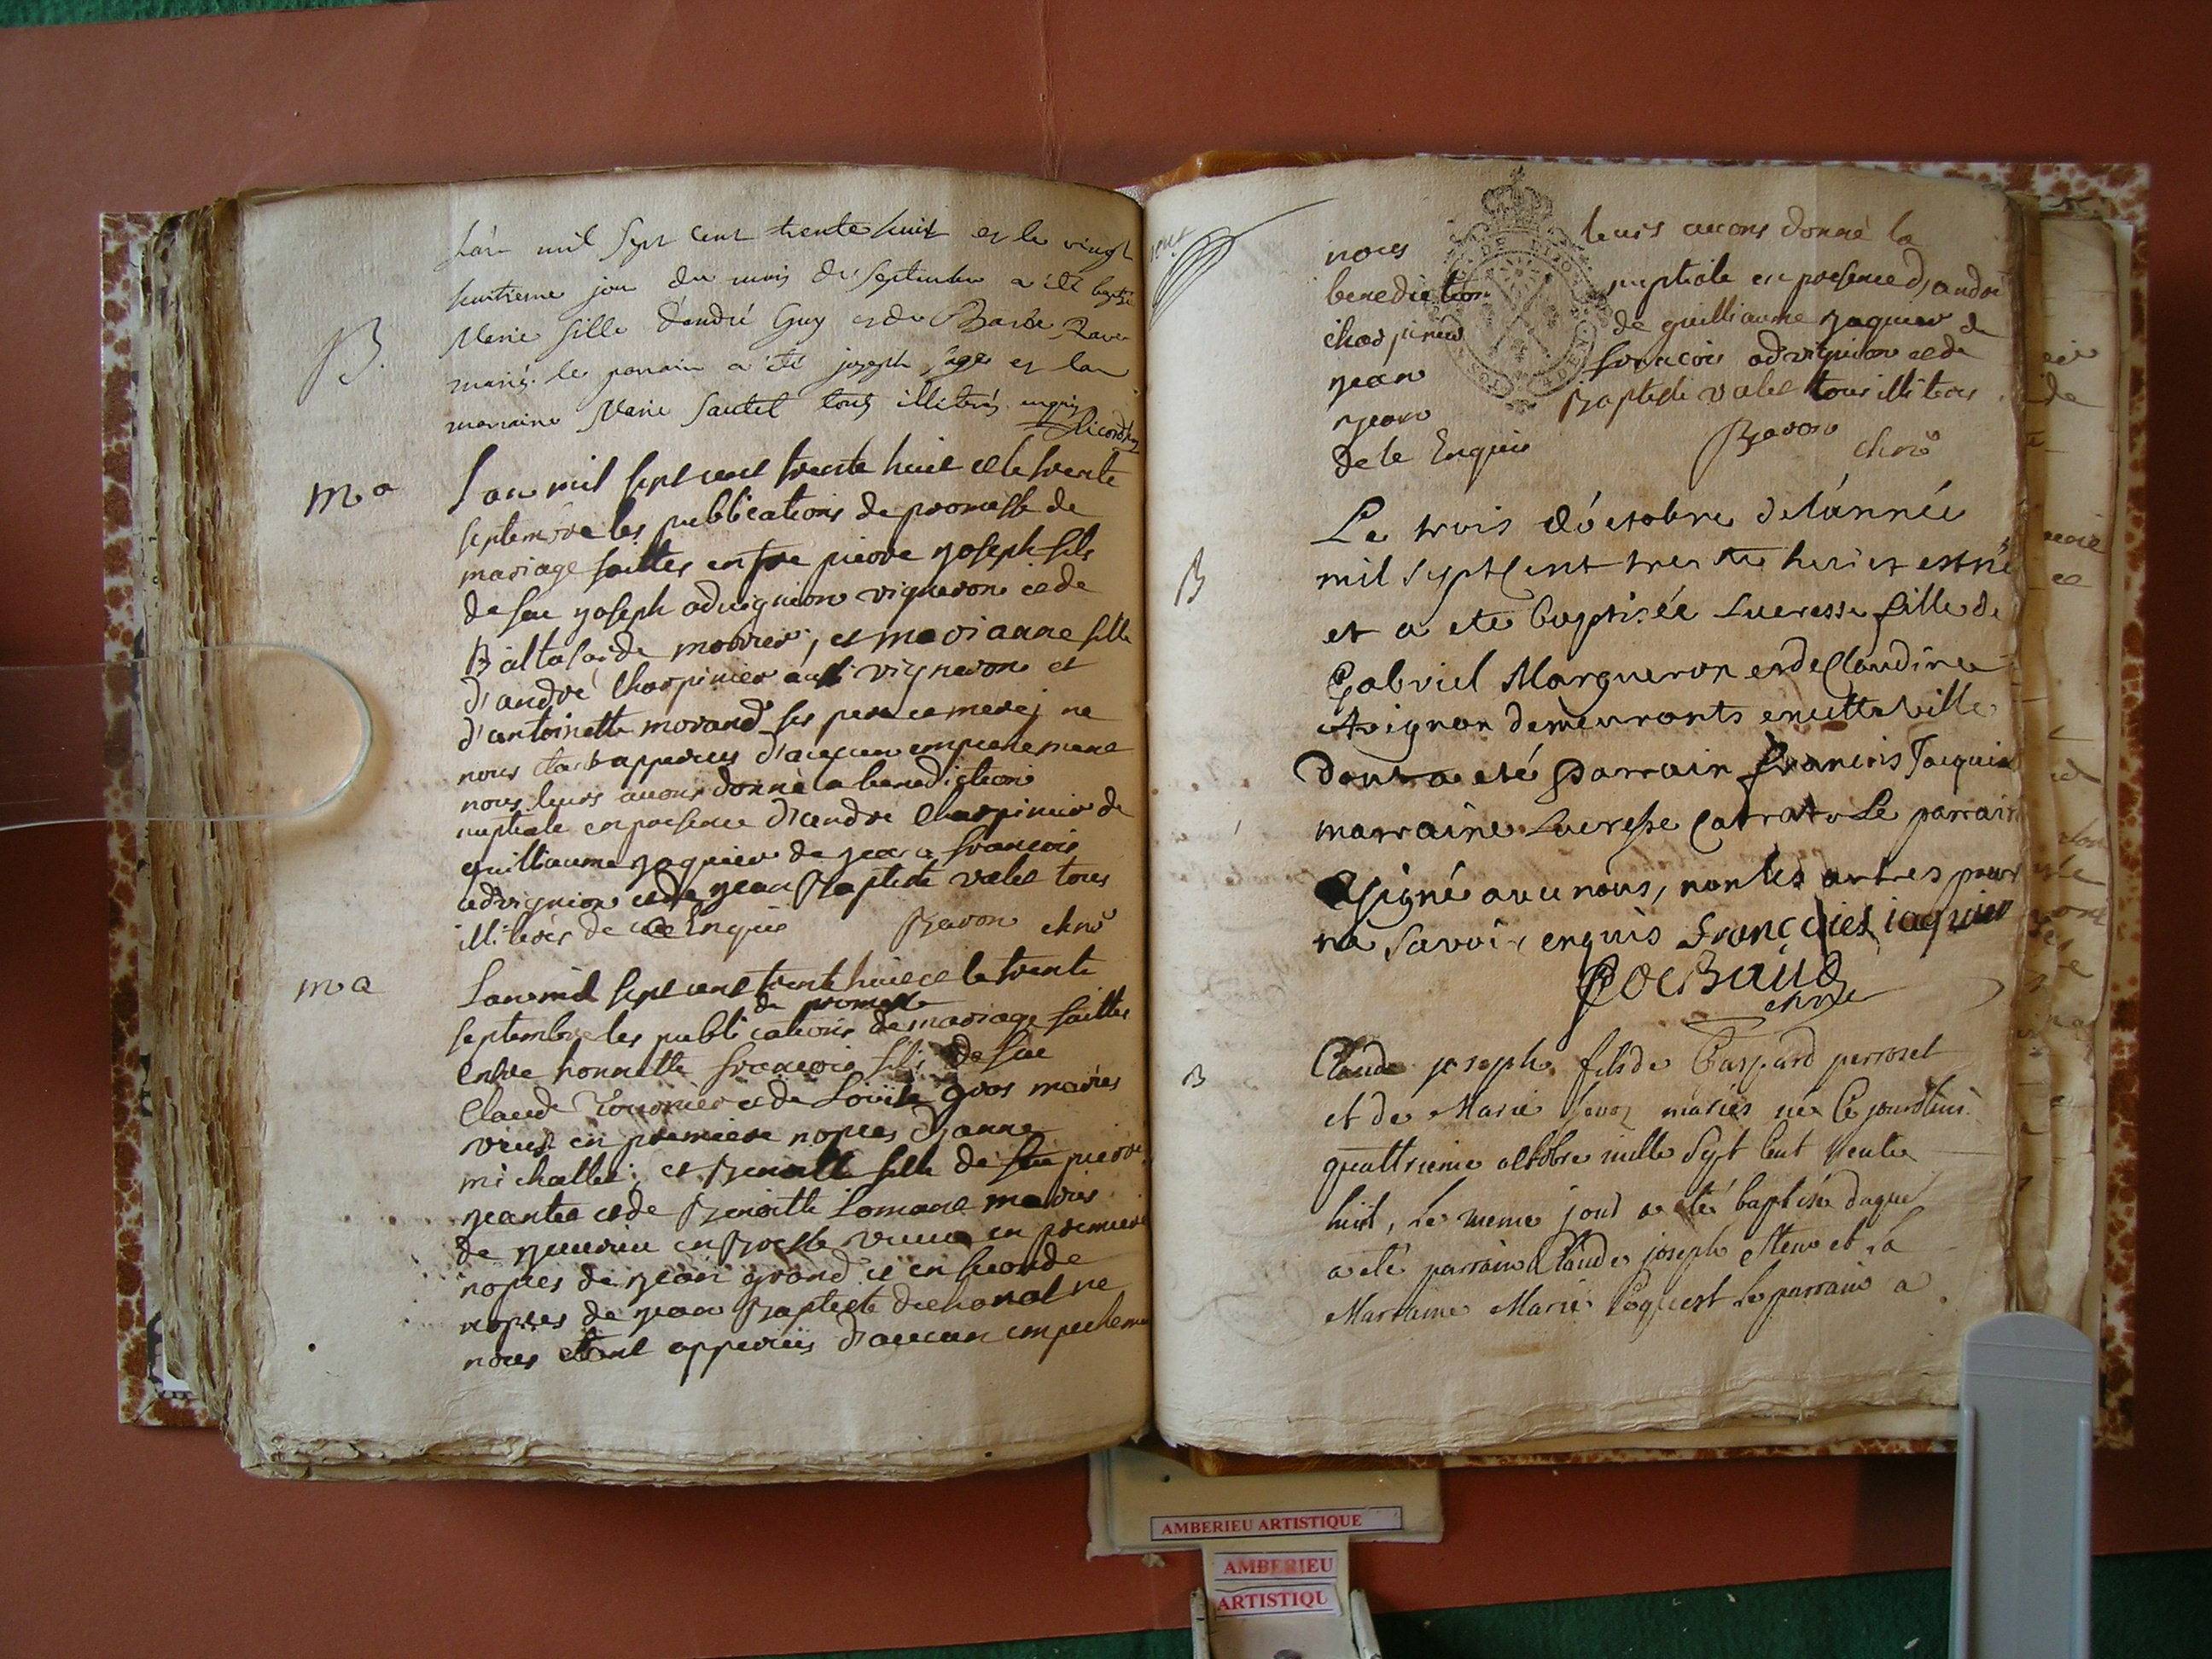 L'an mil sept cent trente huit et le vingt
huitieme jour du mois de septembre a été baptisé
B.
Marie fille d'andré Guy et de
mariés. le parrain a été joseph et la
marraine Marie Sautel tous illiterés enquis
m a
L'an mil sept cent trente huit et le trente
septembre les publications de promesse de
mariage faittes entre pierre joseph fils
de feu joseph advignion vigneron et de
et marianne fille
d'andré Charpinier aussi vigneron et
d'antoinette morand ses pere et mere, ne
nous etant apparus d'aucun empechement
nous leurs avons donné la benediction
nuptiale en presence d'andré Charpinier de
guilliaume jaquier de jean francois
advignion et de jean Baptiste valet tous
illiterés de ce Enquis Bavon
m a
L'an mil sept cent trente huit et le trente
de promesse
septembre les publications de mariage faittes
entre honnette francois fils de feu
Claude et de Louise gros mariés
veuf en premiere nopces d'janne
michallet; et Benoitte fille de feu pierre
et de Benoitte mariés
de en Bresse veuve en premiere
nopces de jean grand et en seconde
nopces de jean Baptiste ne
nous etant apparus d'aucun empecheme
nous leurs avons donné la
benediction nuptiale en presence d'andré
charpinier de guilliaume jaquier de
jean francois advignion et de
jean Baptiste valet tous illiteres
de ce Enquis Bavon
Le trois d'octobre de l'année
B
mil sept cent trente huit est né
et a eté baptisée Lucresse fille de
Gabriel Margueron et de Claudine
Avignon demeurants en cette ville
dont a eté parrain francois Jacquier
marraine Lucresse Catrat Le parrain
a signé avec nous, non les autres pour
ne savoir enquis françoies iaquier
B
Claude joseph fils de Gaspard perroset
et de Marie mariés né ce jourdhui
quattrieme octobre mille Sept Cent trente
huit, le meme jour a eté baptisé duquel
a eté parrain Claude joseph et la
Marraine Marie le parrain a
AMBERIEU ARTISTIQUE
AMBERIEU
ARTISTIQU